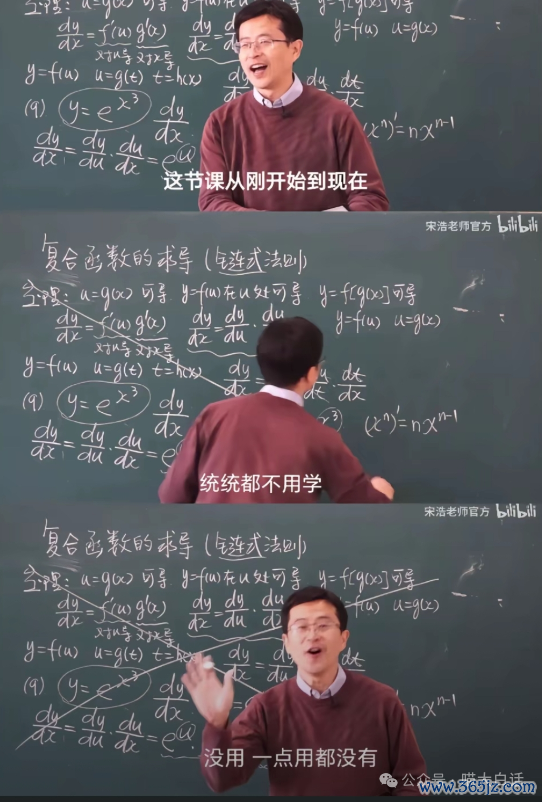 定理:
dy/dx=f'(u) g'(x)
dy/dx=dy/du
对u导 对x导
y=f(u) u=g(x)
y=f(u) u=g(t) t=h(x)
du dt/dx
(9) y=e^x³ dy/dx
(xⁿ)'=n·xⁿ⁻¹
dy/dx=dy/du·du/dx=e^u
这节课从刚开始到现在
宋浩老师官方 bilibili
复合函数的求导(链式法则)
定理: u=g(x) 可导 y=f(u)在u处可导 y=f[g(x)]可导
dy/dx=f'(u) g'(x) dy/dx=dy/du·du
y=f(u) u=g(x)
对u导 对x导
y=f(u) u=g(t) t=h(x) dy/dx= ·dt/dx
(9) y=e^x³ dy/dx x³) (xⁿ)'=n·xⁿ⁻¹
dy/dx=dy/du·du/dx=e
统统都不用学
宋浩老师官方 bilibili
复合函数的求导(链式法则)
定理: u=g(x) 可导 y=f(u)在u处可导 y=f[g(x)]可导
dy/dx=f'(u) g'(x) dy/dx=dy/du·du
f(u) u=g(x)
对u导 对x导
y=f(u) u=g(t) t=h(x) dy/dx=d dt
(9) y=e^x³ dy
n·xⁿ⁻¹
dy/dx=dy/du·du/dx=e^u
没用 一点用都没有
公众号·喵大白话
www.365jz.com